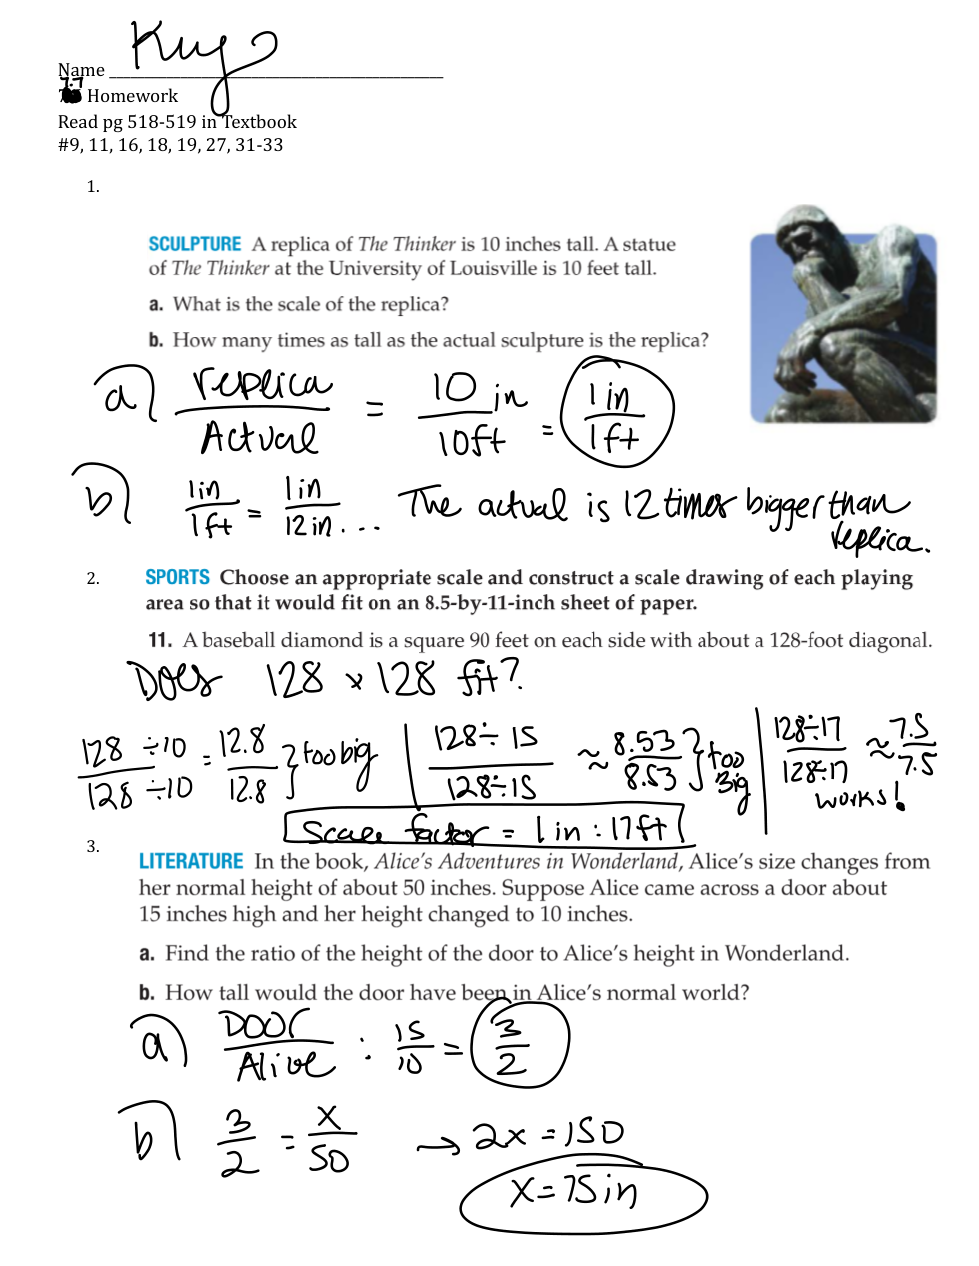 Key
Name
7.7
Homework
Read pg 518-519 in Textbook
#9, 11, 16, 18, 19, 27, 31-33
1.
SCULPTURE A replica of The Thinker is 10 inches tall. A statue
of The Thinker at the University of Louisville is 10 feet tall.
a. What is the scale of the replica?
b. How many times as tall as the actual sculpture is the replica?
a) replica / Actual = 10 in / 10ft = 1 in / 1ft
b) 1in / 1ft = 1in / 12in... The actual is 12 times bigger than
replica.
2.
SPORTS Choose an appropriate scale and construct a scale drawing of each playing
area so that it would fit on an 8.5-by-11-inch sheet of paper.
11. A baseball diamond is a square 90 feet on each side with about a 128-foot diagonal.
Does 128 x 128 fit?
128 ÷10 / 128 ÷10 = 12.8 / 12.8 } too big
128÷15 / 128÷15 ≈ 8.53 / 8.53 } too big
128÷17 / 128÷17 ≈ 7.5 / 7.5
works!
Scale factor = 1 in : 17ft
3.
LITERATURE In the book, Alice's Adventures in Wonderland, Alice's size changes from
her normal height of about 50 inches. Suppose Alice came across a door about
15 inches high and her height changed to 10 inches.
a. Find the ratio of the height of the door to Alice's height in Wonderland.
b. How tall would the door have been in Alice's normal world?
a) DOOr / Alice : 15 / 10 = 3 / 2
b) 3 / 2 = x / 50 → 2x = 150
x = 75in